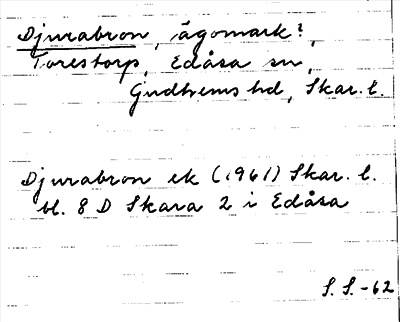 Djurabron, ägomark?,
Torestorp, Edåsa sn,
Gudhems hd, Skar. l.
Djurabron ek (1961) Skar. l.
bl. 8 D Skara 2 i Edåsa
S. S. -62